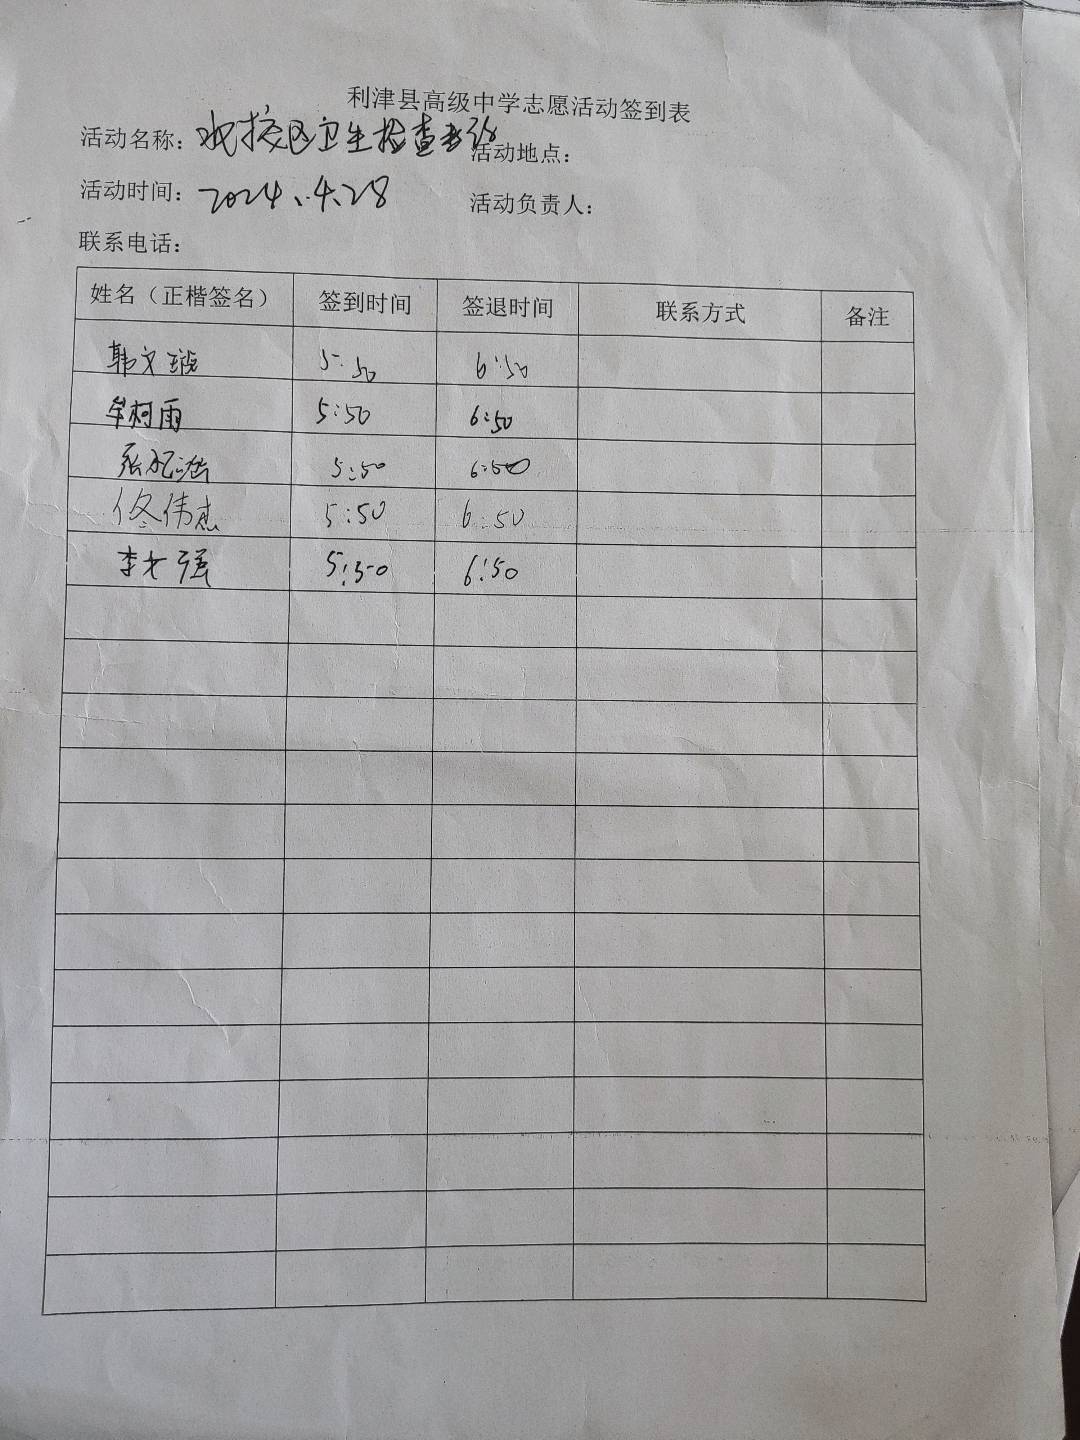 利津县高级中学志愿活动签到表
活动名称：校区卫生检查 活动地点：
活动时间：2024.4.28 活动负责人：
联系电话：
姓名（正楷签名） 签到时间 签退时间 联系方式 备注
韩文 5:50 6:50
牟柯雨 5:50 6:50
张 5:50 6:50
佟伟杰 5:50 6:50
李 强 5:50 6:50